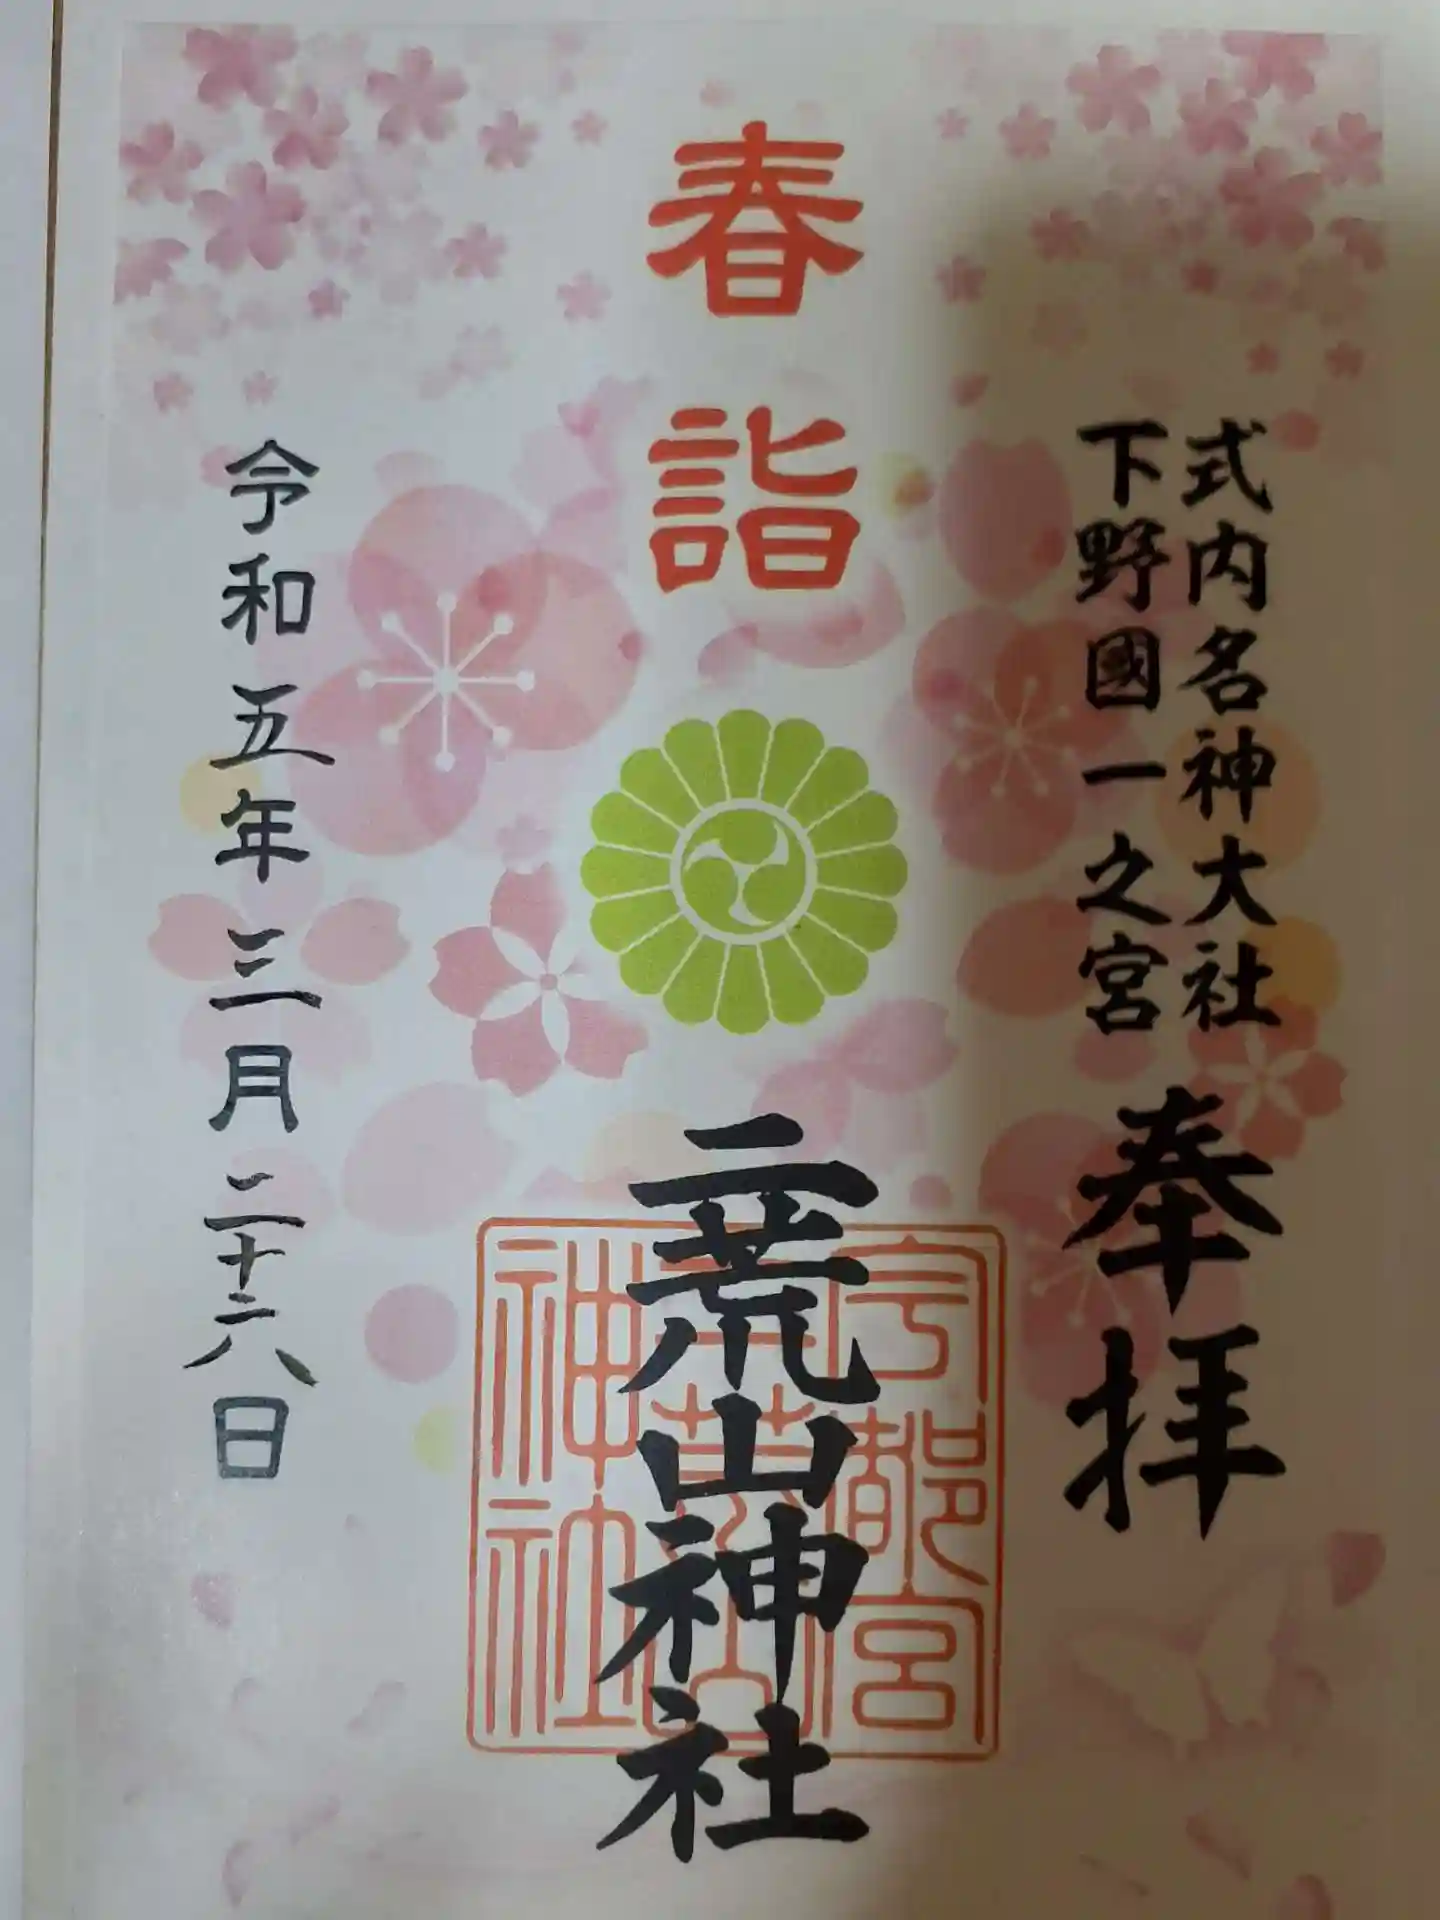 式内名神大社
下野國一之宮
奉拝
春詣
二荒山神社
宇都宮
二荒山
神社
令和五年三月二十八日